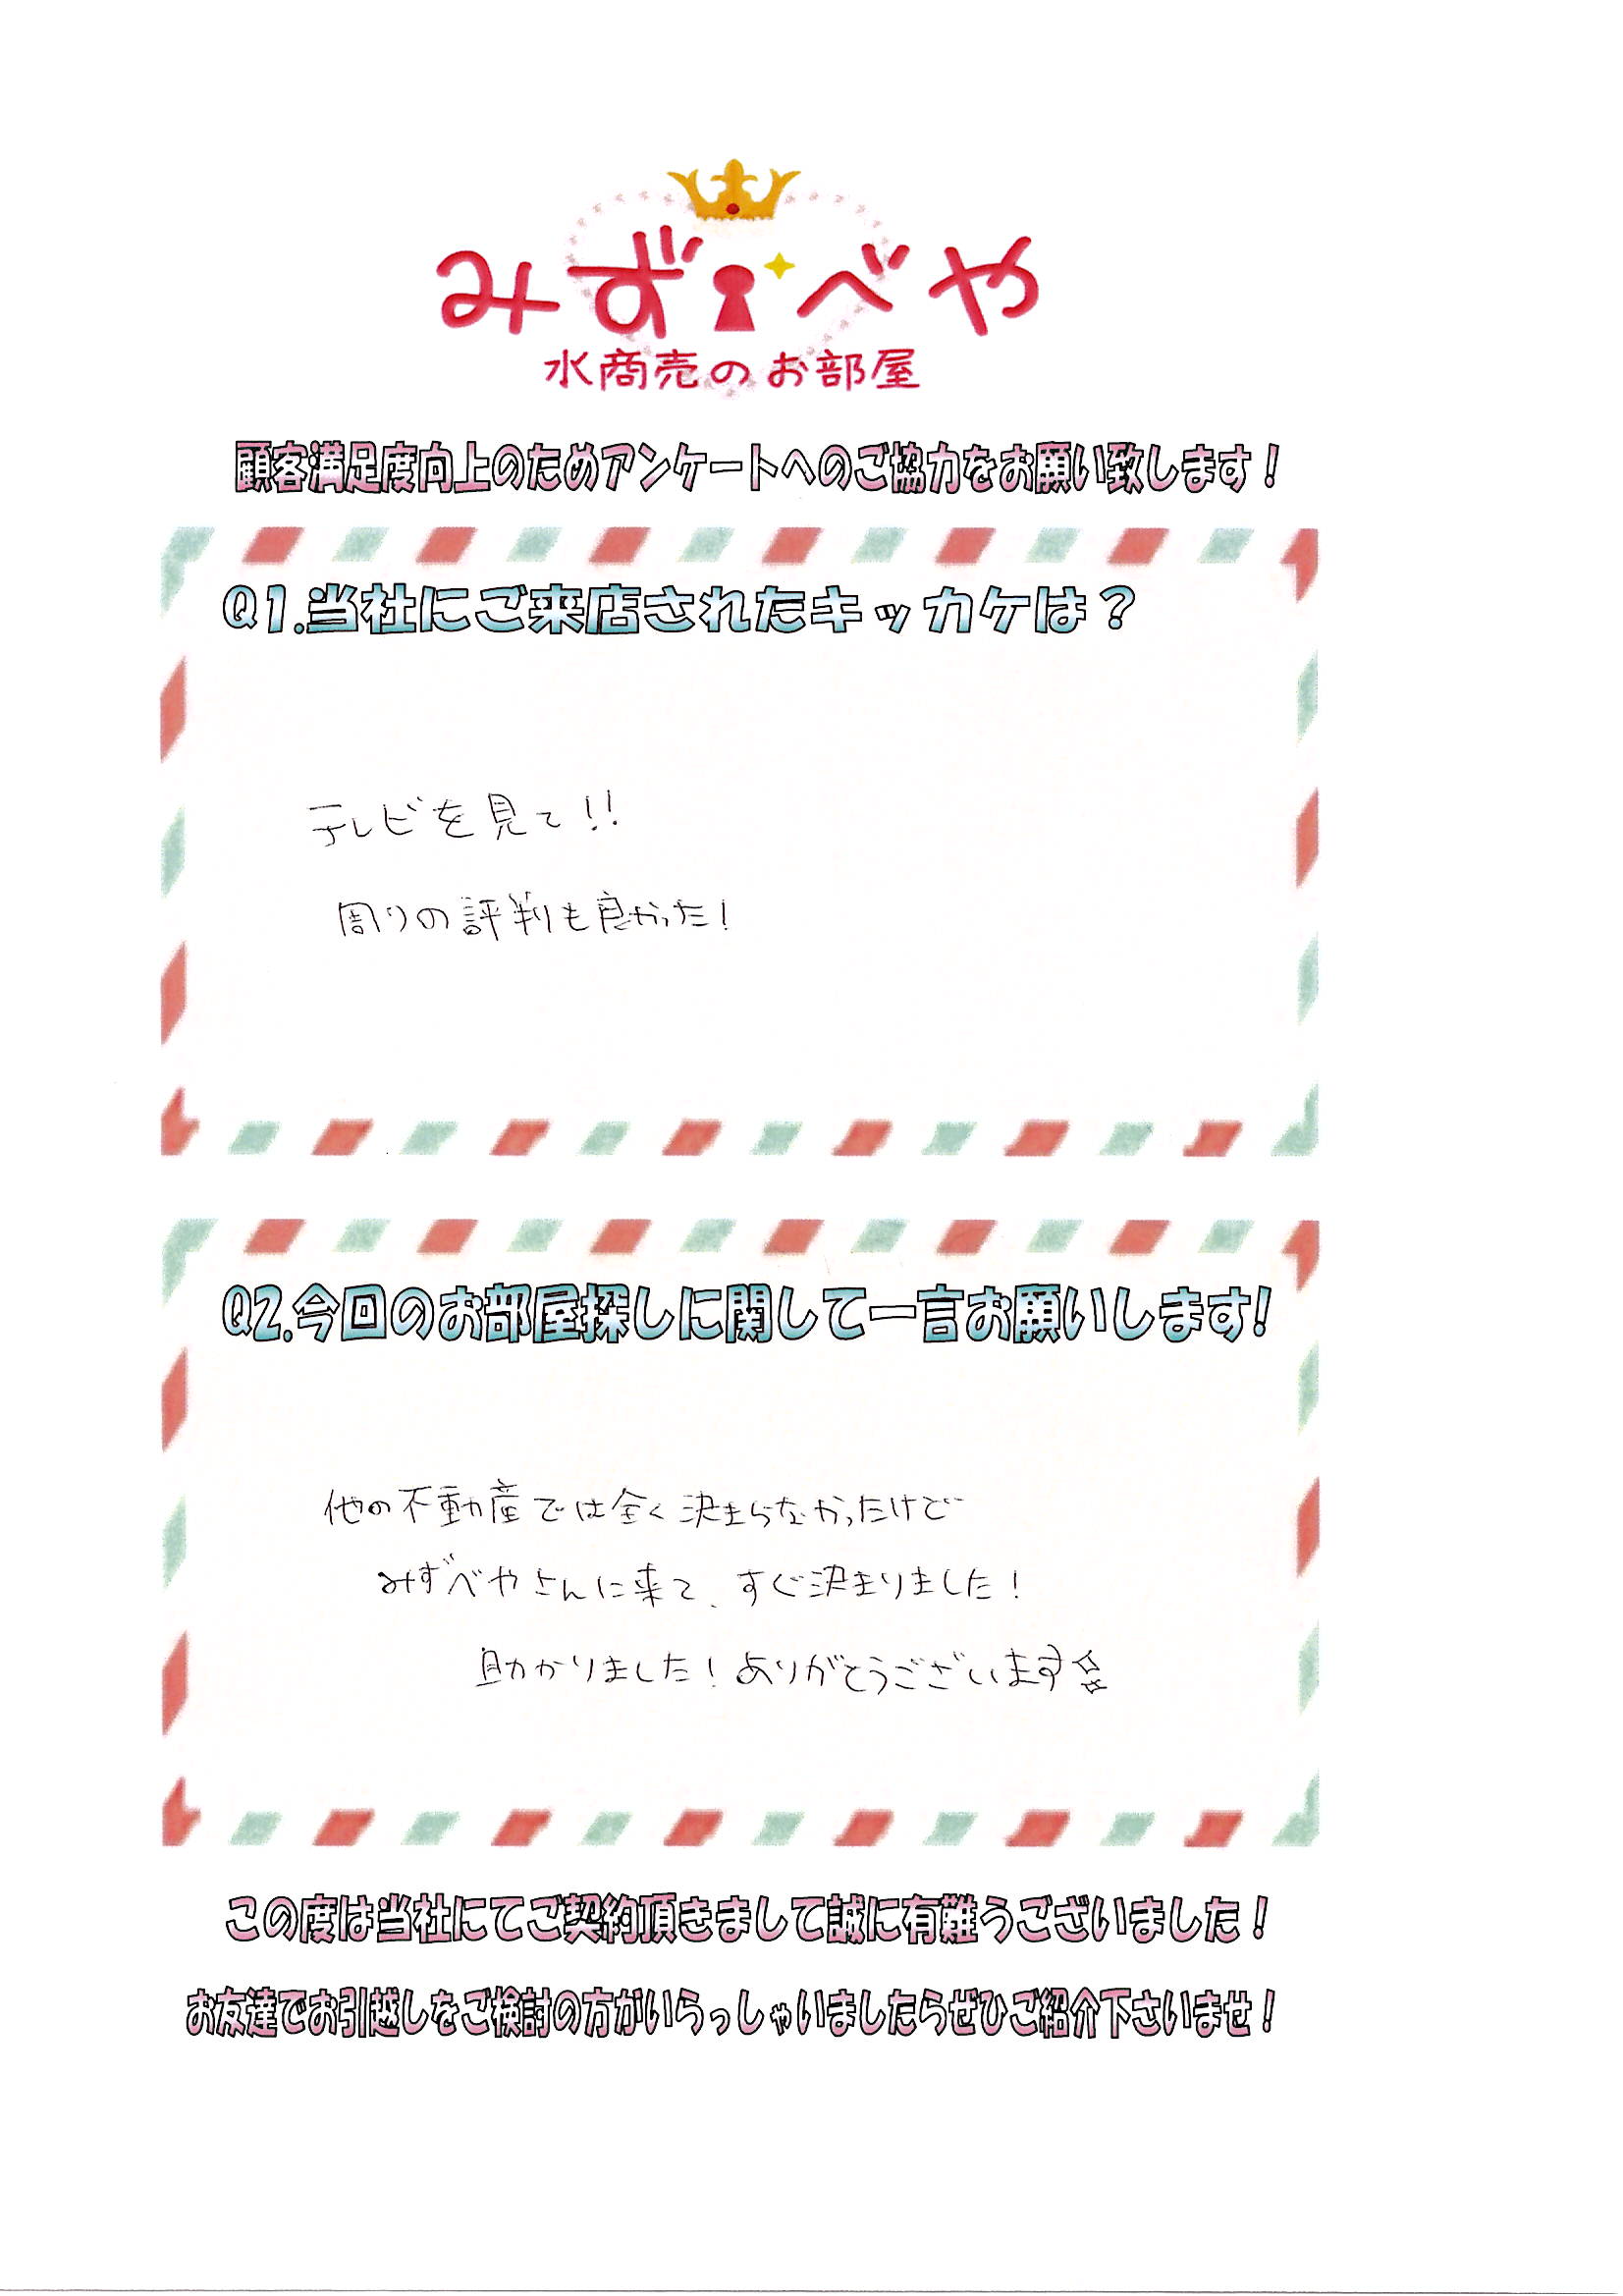 みずべや
水商売のお部屋
顧客満足度向上のためアンケートへのご協力をお願い致します！
Q1.当社にご来店されたキッカケは？
テレビを見て!!
周りの評判も良かった！
Q2.今回のお部屋探しに関して一言お願いします!
他の不動産では全く決まらなかったけど
みずべやさんに来て、すぐ決まりました！
助かりました！ありがとうございます☆☆
この度は当社にてご契約頂きまして誠に有難うございました！
お友達でお引越しをご検討の方がいらっしゃいましたらぜひご紹介下さいませ！